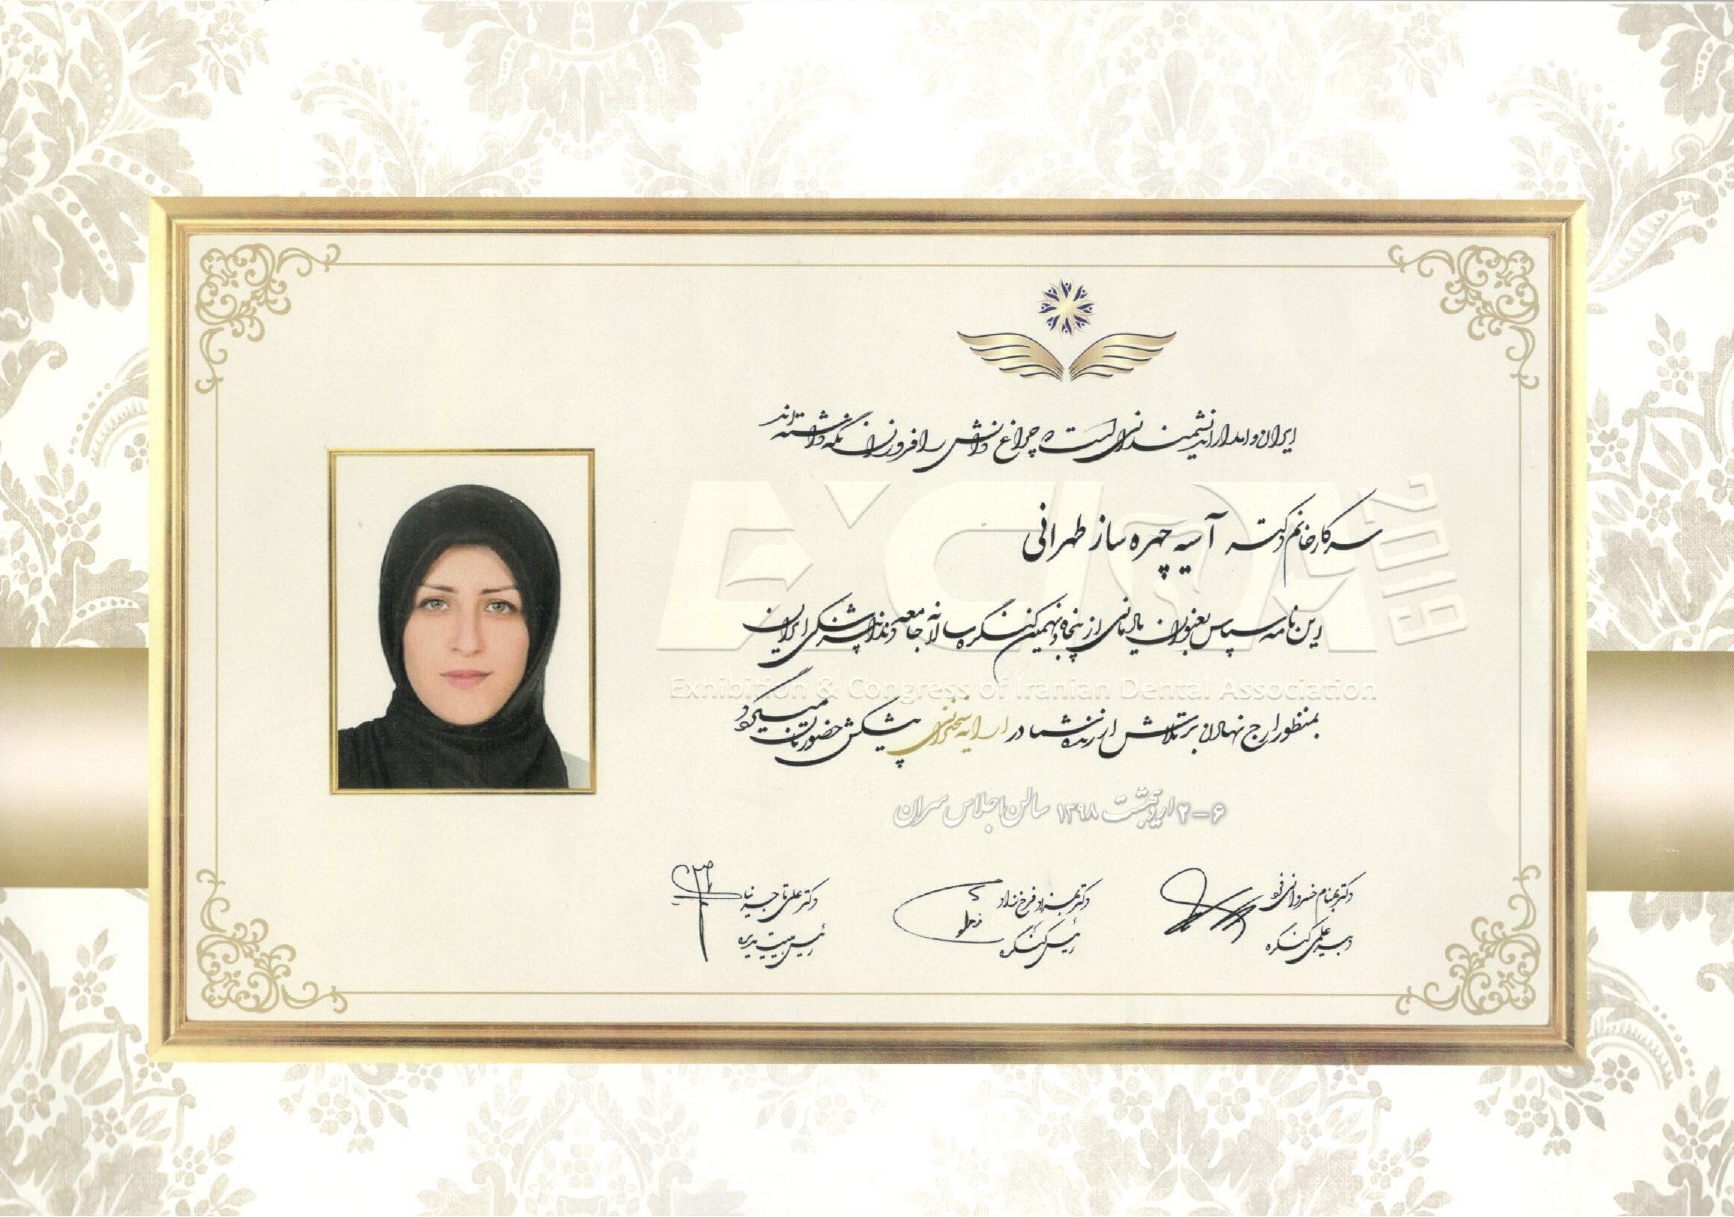 ایران وامدار اندیشمندانی است که چراغ دانش را فروزان نگه داشته‌اند
سرکار خانم دکتر آسیه چهره ساز طهرانی
این نامه سپاس بعنوان یادمانی از پنجاه و نهمین کنگره سالانه جامعه دندانپزشکی ایران
بمنظور ارج نهادن بر تلاش ارزنده شما در ارایه سخنرانی پیشکش حضورتان میگردد
۲-۶ اردیبهشت ۱۳۹۸ سالن اجلاس سران
EXCIDA 2019
Exhibition & Congress of Iranian Dental Association
دکتر بهنام خسروانی فرد
دبیر علمی کنگره
دکتر بهزاد فرخ زاد
رئیس کنگره
دکتر علی تاجرنیا
رئیس هیت مدیره